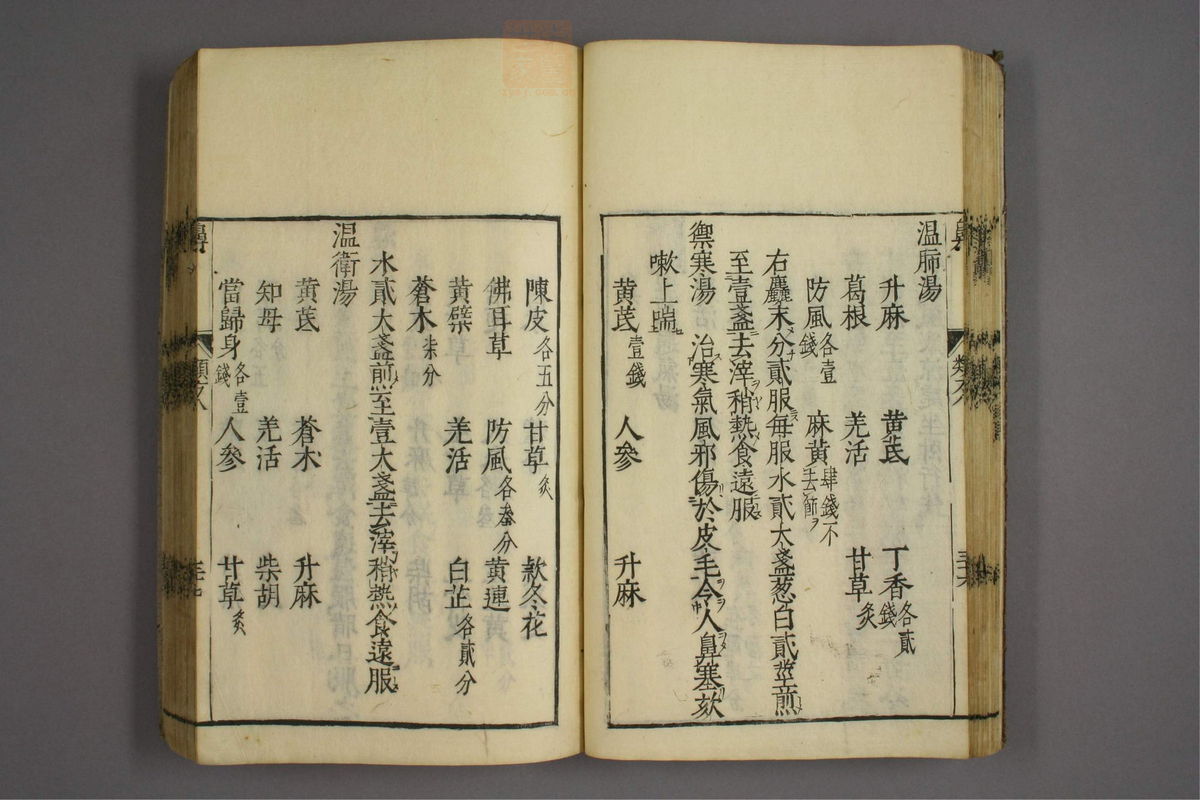 温肺湯
升麻 黄芪 丁香各貳錢
葛根 羌活 甘草炙
防風各壹錢 麻黄肆錢不去節
右麤末分貳服毎服水貳大盞葱白貳莖煎
至壹盞去滓稍熱食遠服
禦寒湯 治寒氣風邪傷於皮毛令人鼻塞欬
嗽上喘
黄芪壹錢 人參 升麻
陳皮各五分 甘草炙 欵冬花
佛耳草 防風各叄分 黄連
黄檗 羌活 白芷各貳分
蒼木柒分
水貳大盞煎至壹大盞去滓稍熱食遠服
温衛湯
黄芪 蒼木 升麻
知母 羌活 柴胡
當歸身各壹錢 人參 甘草炙
鼻